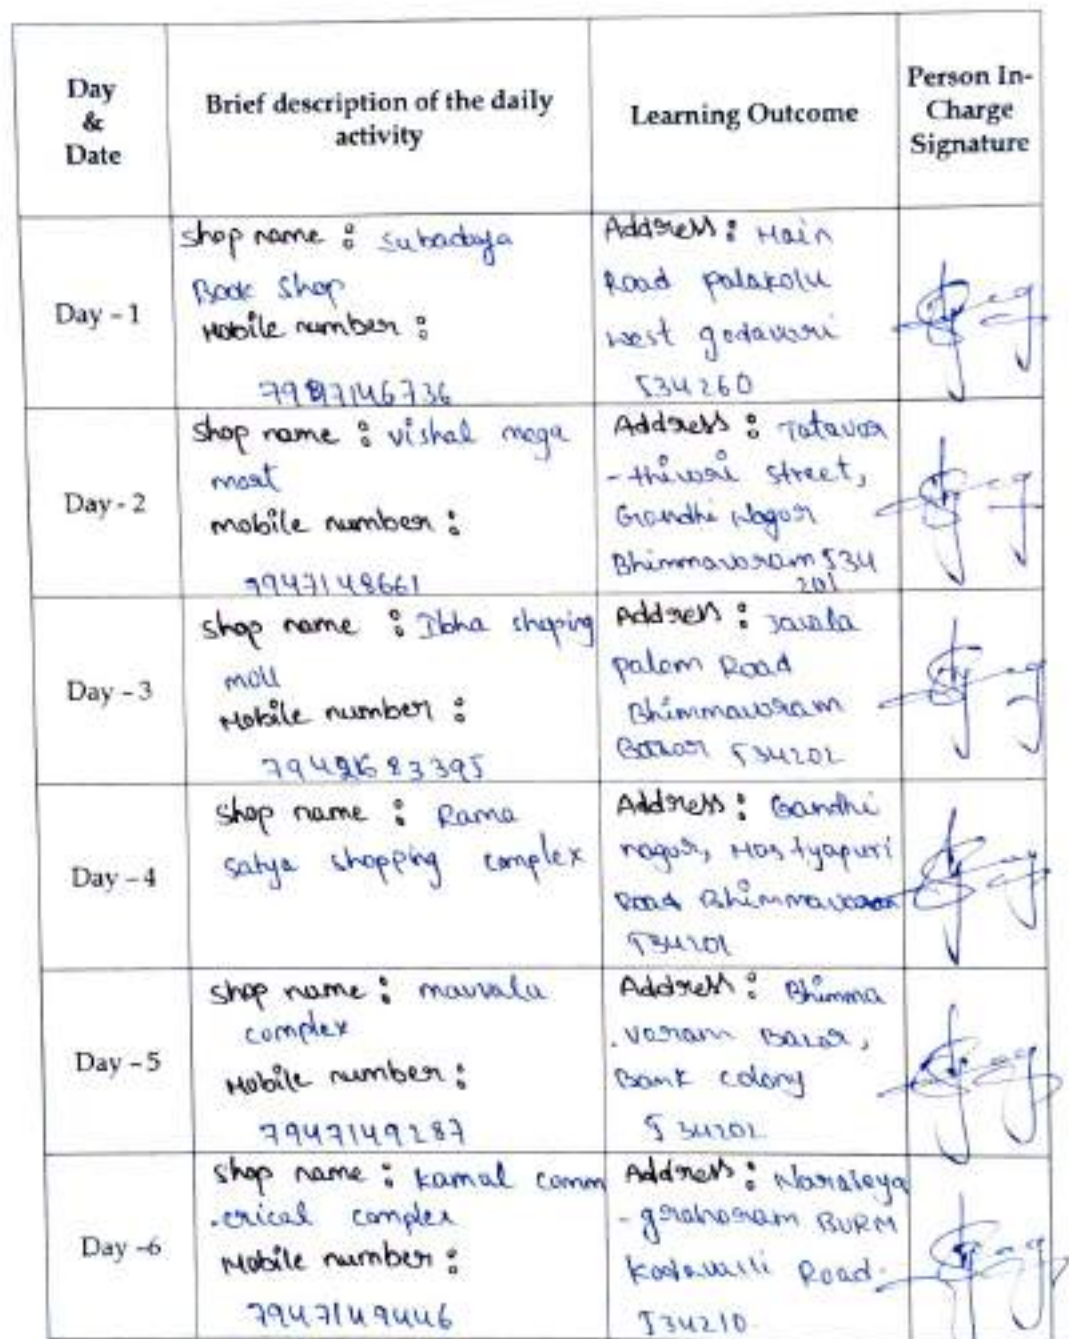 Day & Date
Brief description of the daily activity
Learning Outcome
Person In-Charge Signature
Day - 1
Shop name :
Book Shop
Mobile number :
Address : Main
Road palakolu
west godavari
534260
Day - 2
Shop name : vishal mega
mart
mobile number :
7947148661
Address :
street,
Gandhi Nagar
Bhimmavaram 534
201
Day - 3
Shop name : shoping
moll
Mobile number :
Address :
palem Road
Bhimmavaram
Bazar 534202
Day - 4
Shop name : Rama
satya shopping complex
Address : Gandhi
nagar,
Road
534201
Day - 5
Shop name :
complex
Mobile number :
7947149287
Address : Bhimma
.varam Bazar,
Bank colony
534202
Day -6
Shop name : kamal comm
.erical complex
Mobile number :
7947149446
Address :
Road.
534210.